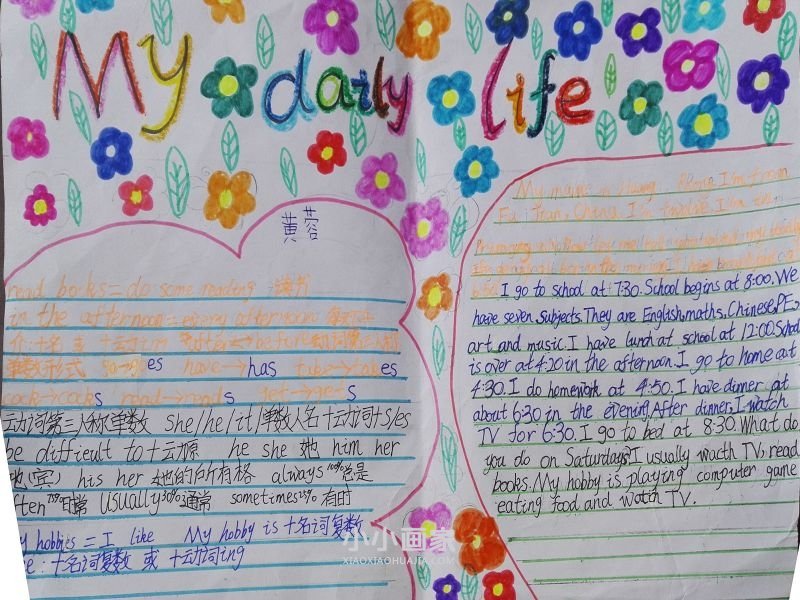 My daily life
黄蓉
read books=do some reading 读书
in the afternoon=every afternoon
before
单数形式 go→goes have→has take→takes
cock→cocks read→reads get→gets
动词第三人称单数 she/he/it/单数人名+动词+s/es
be difficult to+动原 he she 她 him her
他(宾) his her 她的所有格 always 100% 总是
often 75% 日常 Usually 50% 通常 sometimes 25% 有时
My hobbies = I like My hobby is +名词复数
+名词复数 或 +动词ing
My name is Huang I'm from
China
I go to school at 7:30. School begins at 8:00. We
have seven subjects. They are English, maths, Chinese, PE,
art and music. I have lunch at school at 12:00. School
is over at 4:20 in the afternoon. I go to home at
4:30. I do homework at 4:50. I have dinner at
about 6:30 in the evening. After dinner, I watch
TV for 6:30. I go to bed at 8:30. What do
you do on Saturdays? I usually wacth TV, read
books. My hobby is playing computer game
eating food and watch TV.
小小画家
XIAOXIAOHUAJIA.COM